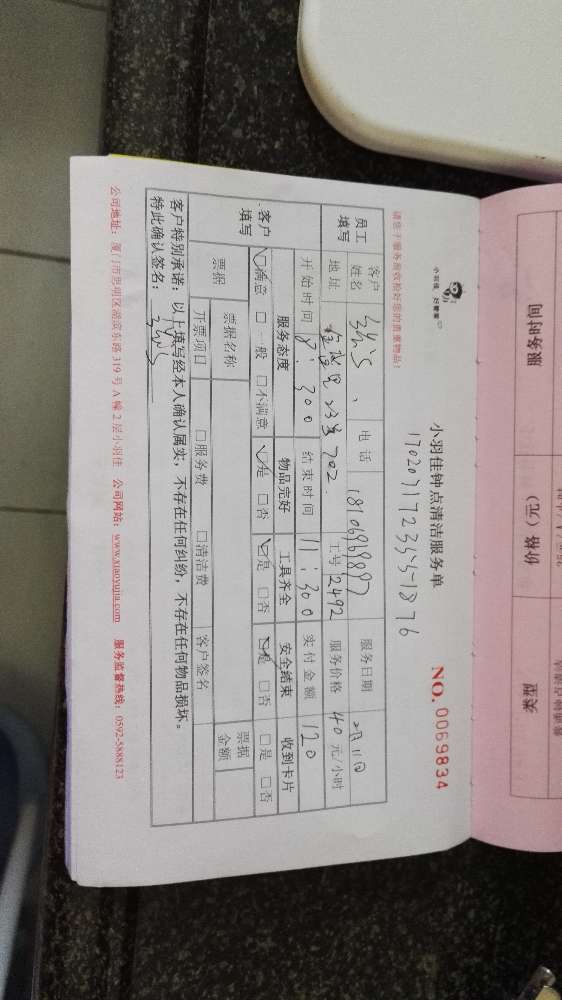 请您于服务前收检好您的贵重物品!
小羽佳钟点清洁服务单
NO. 0069834
员工填写
客户姓名
电话
18106968897
服务日期
2月11日
地址
23号702
工号
2492
服务价格
40 元/小时
开始时间
8:300
结束时间
11:300
实付金额
120
客户填写
服务态度
物品完好
工具齐全
安全结束
收到卡片
☑满意 □一般 □不满意
☑是 □否
☑是 □否
☑是 □否
□是 □否
票据
票据名称
票据金额
开票项目
□服务费 □清洁费
客户签名
客户特别承诺:以上填写经本人确认属实,不存在任何纠纷,不存在任何物品损坏。
特此确认签名:
公司地址:厦门市思明区湖滨东路 319 号 A 幢 2 层小羽佳 公司网站:www.xiaoyujia.com 服务监督热线:0592-5888123
服务时间
价格(元)
类型